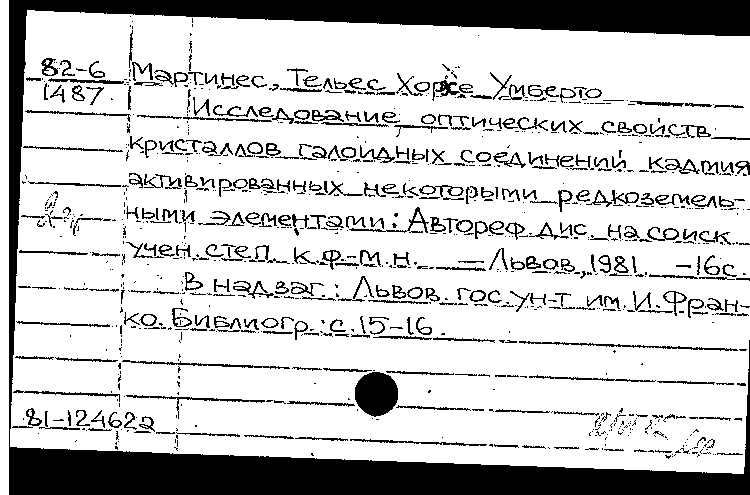 82-6 Мартинес, Тельес Хорхе Умберто
1487. Исследование оптических свойств
кристаллов галоидных соединений кадмия
активированных некоторыми редкоземель-
ными элементами: Автореф. дис. на соиск
учен. степ. к.ф.-м.н. — Львов, 1981. -16с.
В надзаг.: Львов. гос. ун-т им. И. Фран-
ко. Библиогр.: с. 15-16.
81-12462а